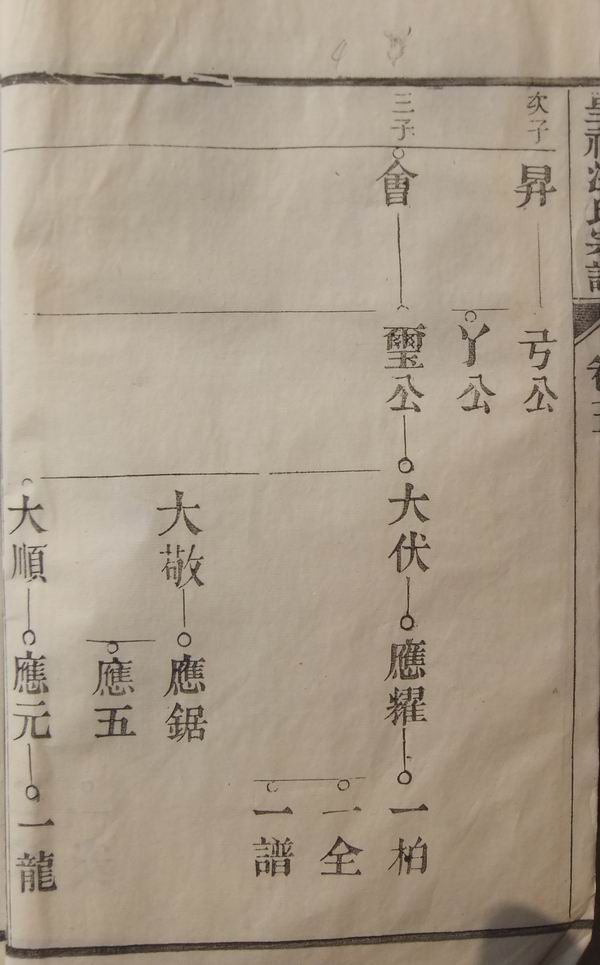 氏宗譜
次子
昇
丂公
丫公
三子
會
璽公
大伏
應耀
一柏
一全
一譜
大敬
應鋸
應五
大順
應元
一龍